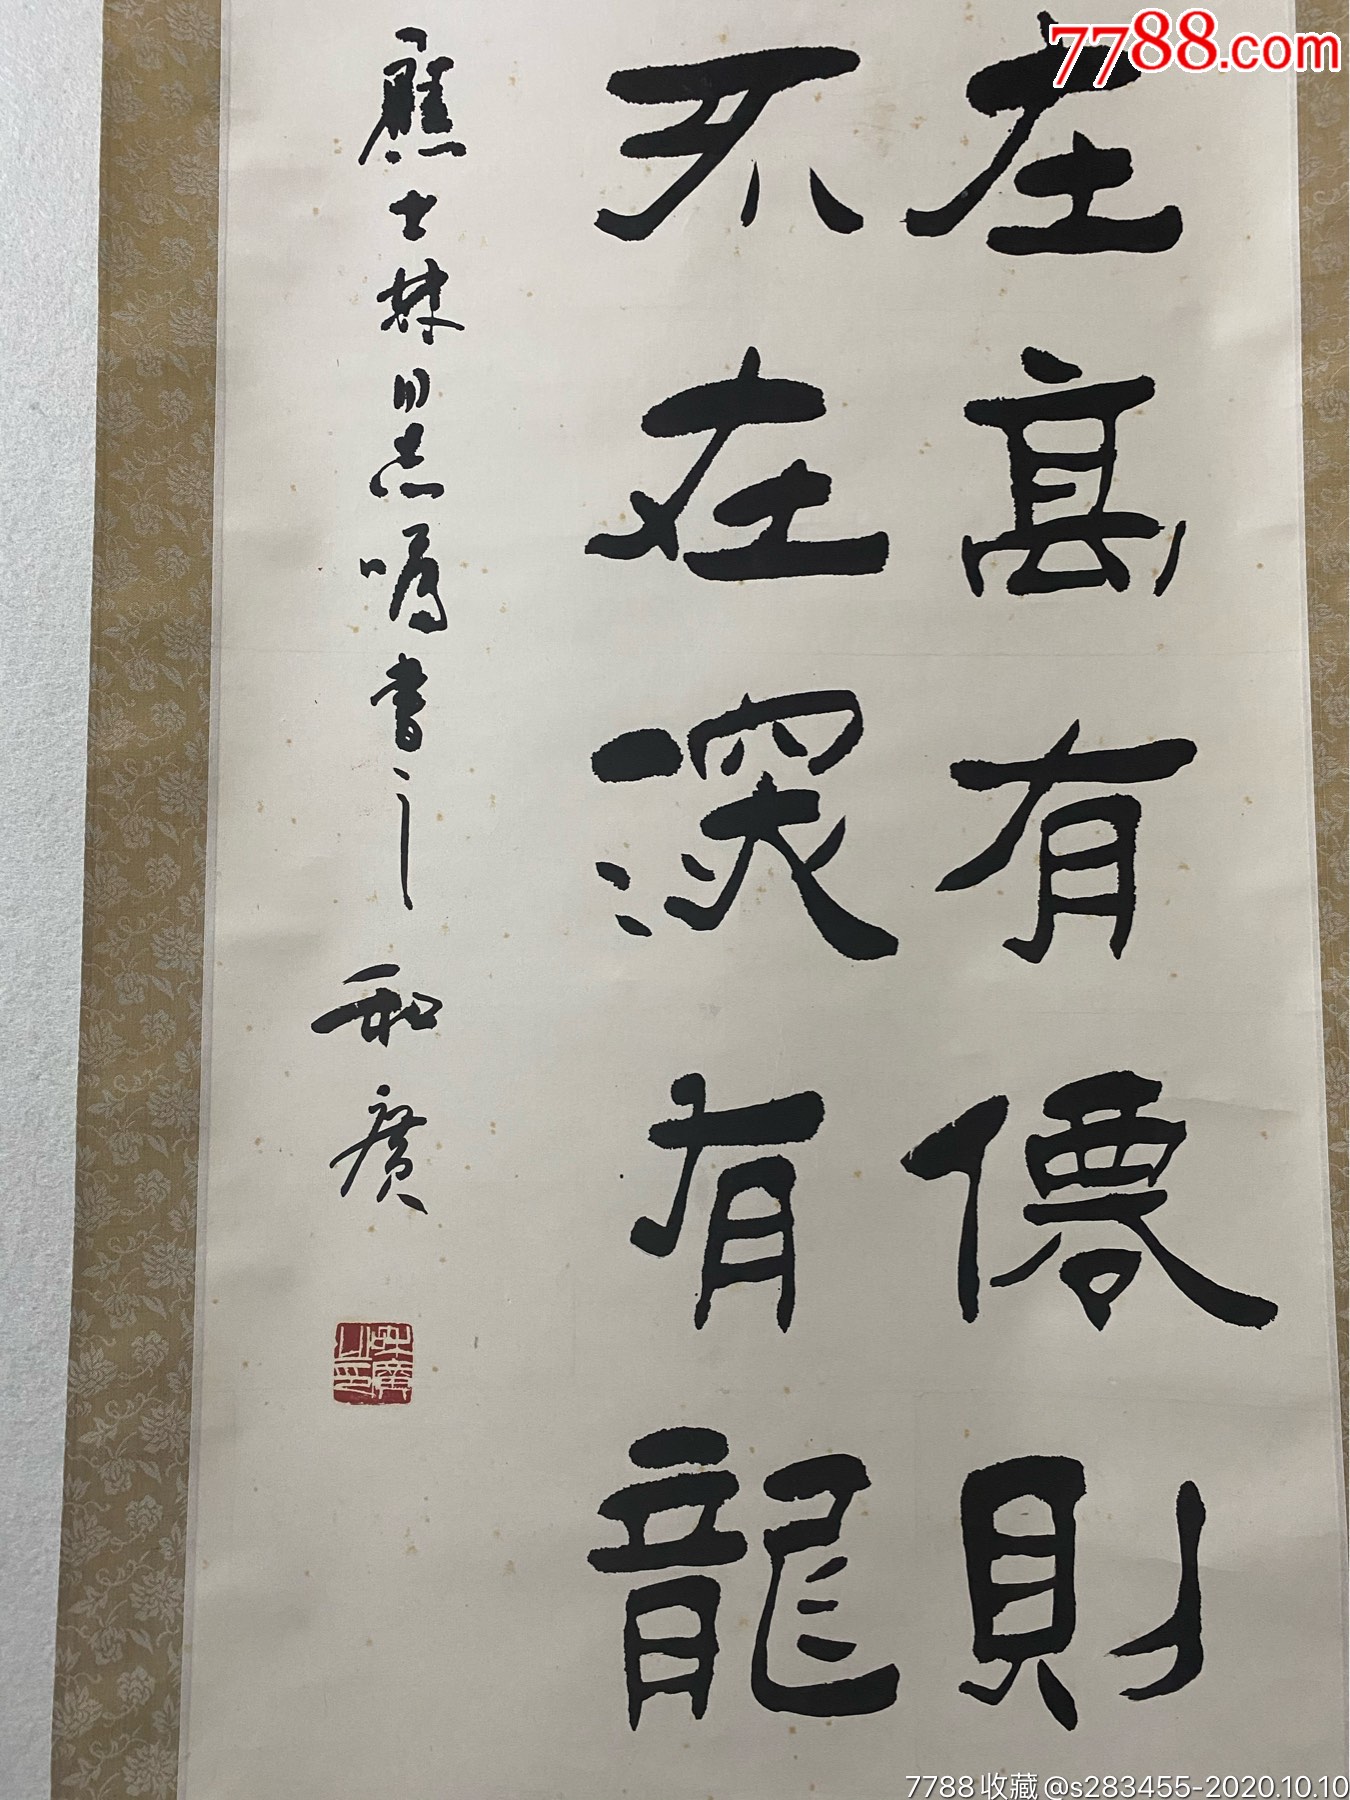 7788.com
在高有僊則
不在深有龍
應士林同志嘱書之 和廣
7788收藏@s283455-2020.10.10